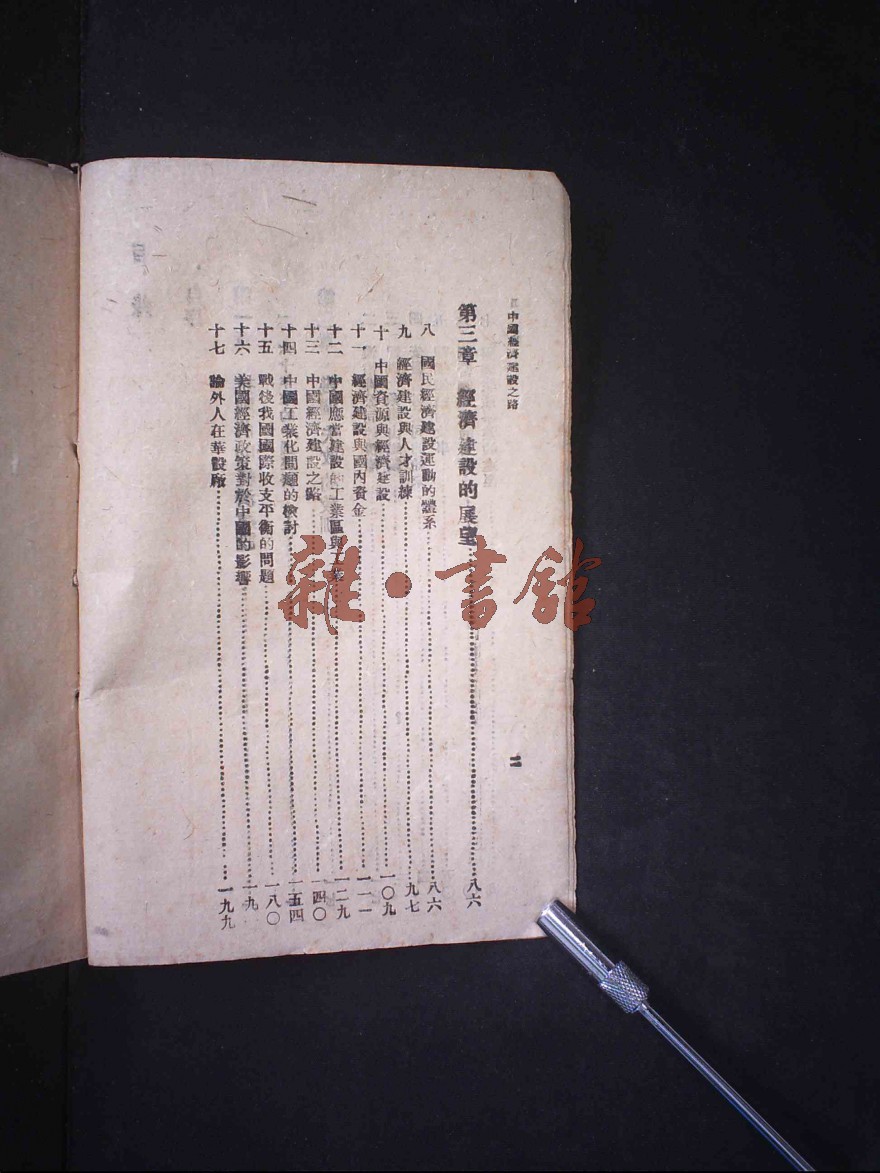 中國經濟建設之路
二
第三章 經濟建設的展望……八六
八 國民經濟建設運動的體系……八六
九 經濟建設與人才訓練……九七
十 中國資源與經濟建設……一〇九
十一 經濟建設與國內資金……一一一
十二 中國應當建設的工業區與工業……一二九
十三 中國經濟建設之路……一四〇
十四 中國工業化問題的檢討……一五四
十五 戰後我國國際收支平衡的問題……一八〇
十六 美國經濟政策對於中國的影響……一九
十七 論外人在華設廠……一九九
雜·書館